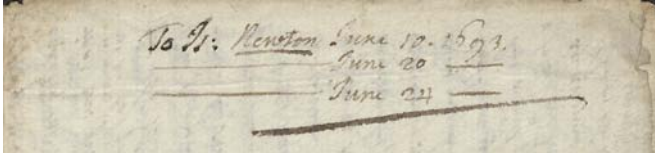 To Is: Newton June 10. 1693.
—— June 20 ——
—— June 24 ——